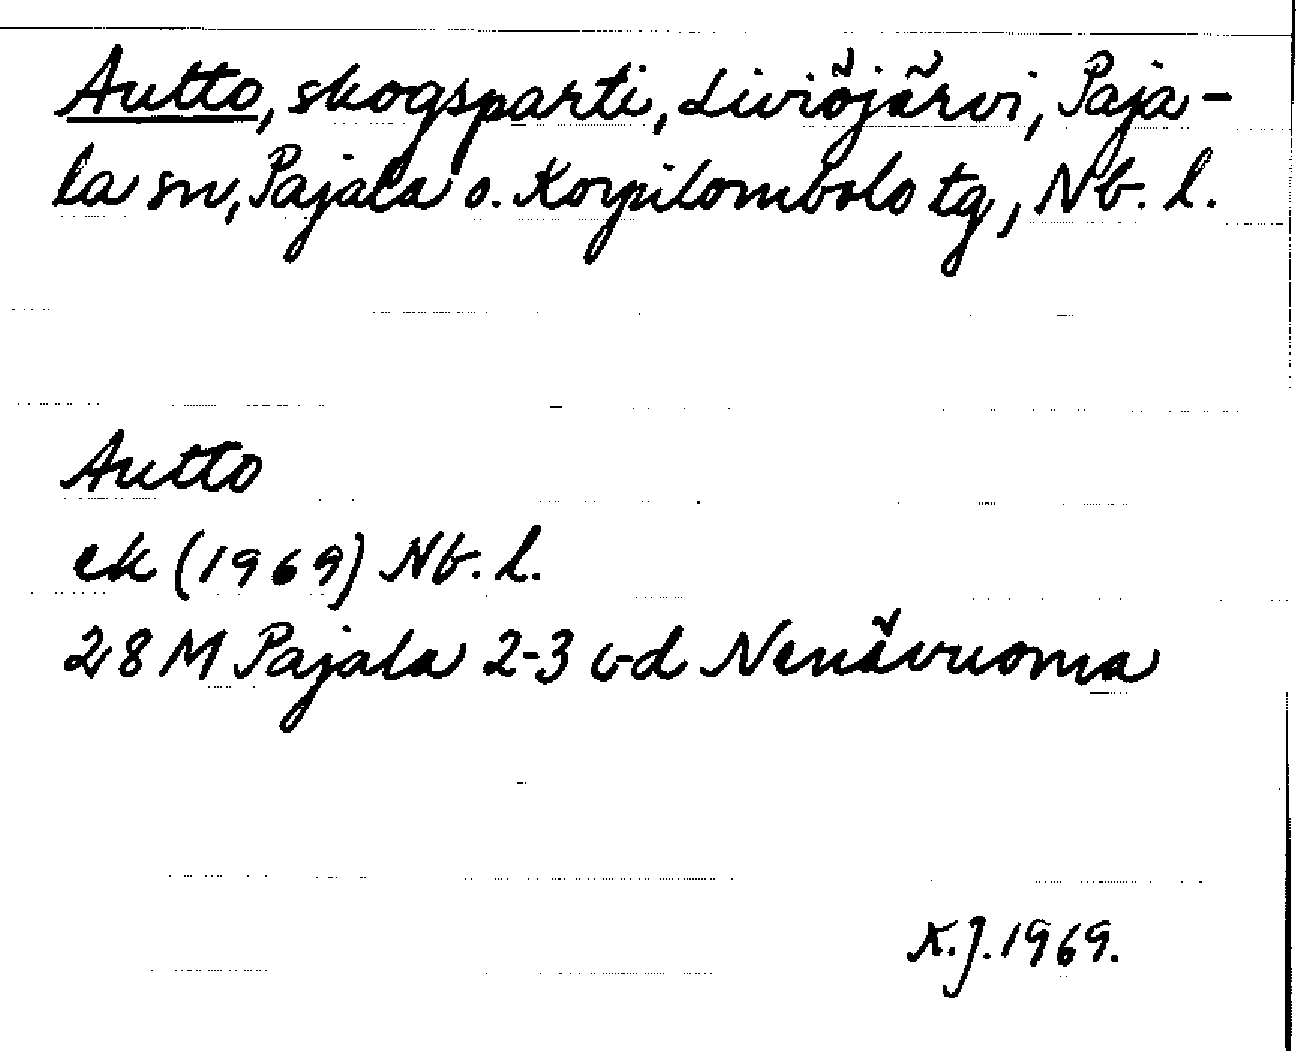 Autto, skogsparti, Liviöjärvi, Paja-
la sn, Pajala o. Korpilombolo tg, Nb. l.
Autto
ek (1969) Nb. l.
28 M Pajala 2-3 c-d Nenävuoma
K.J. 1969.